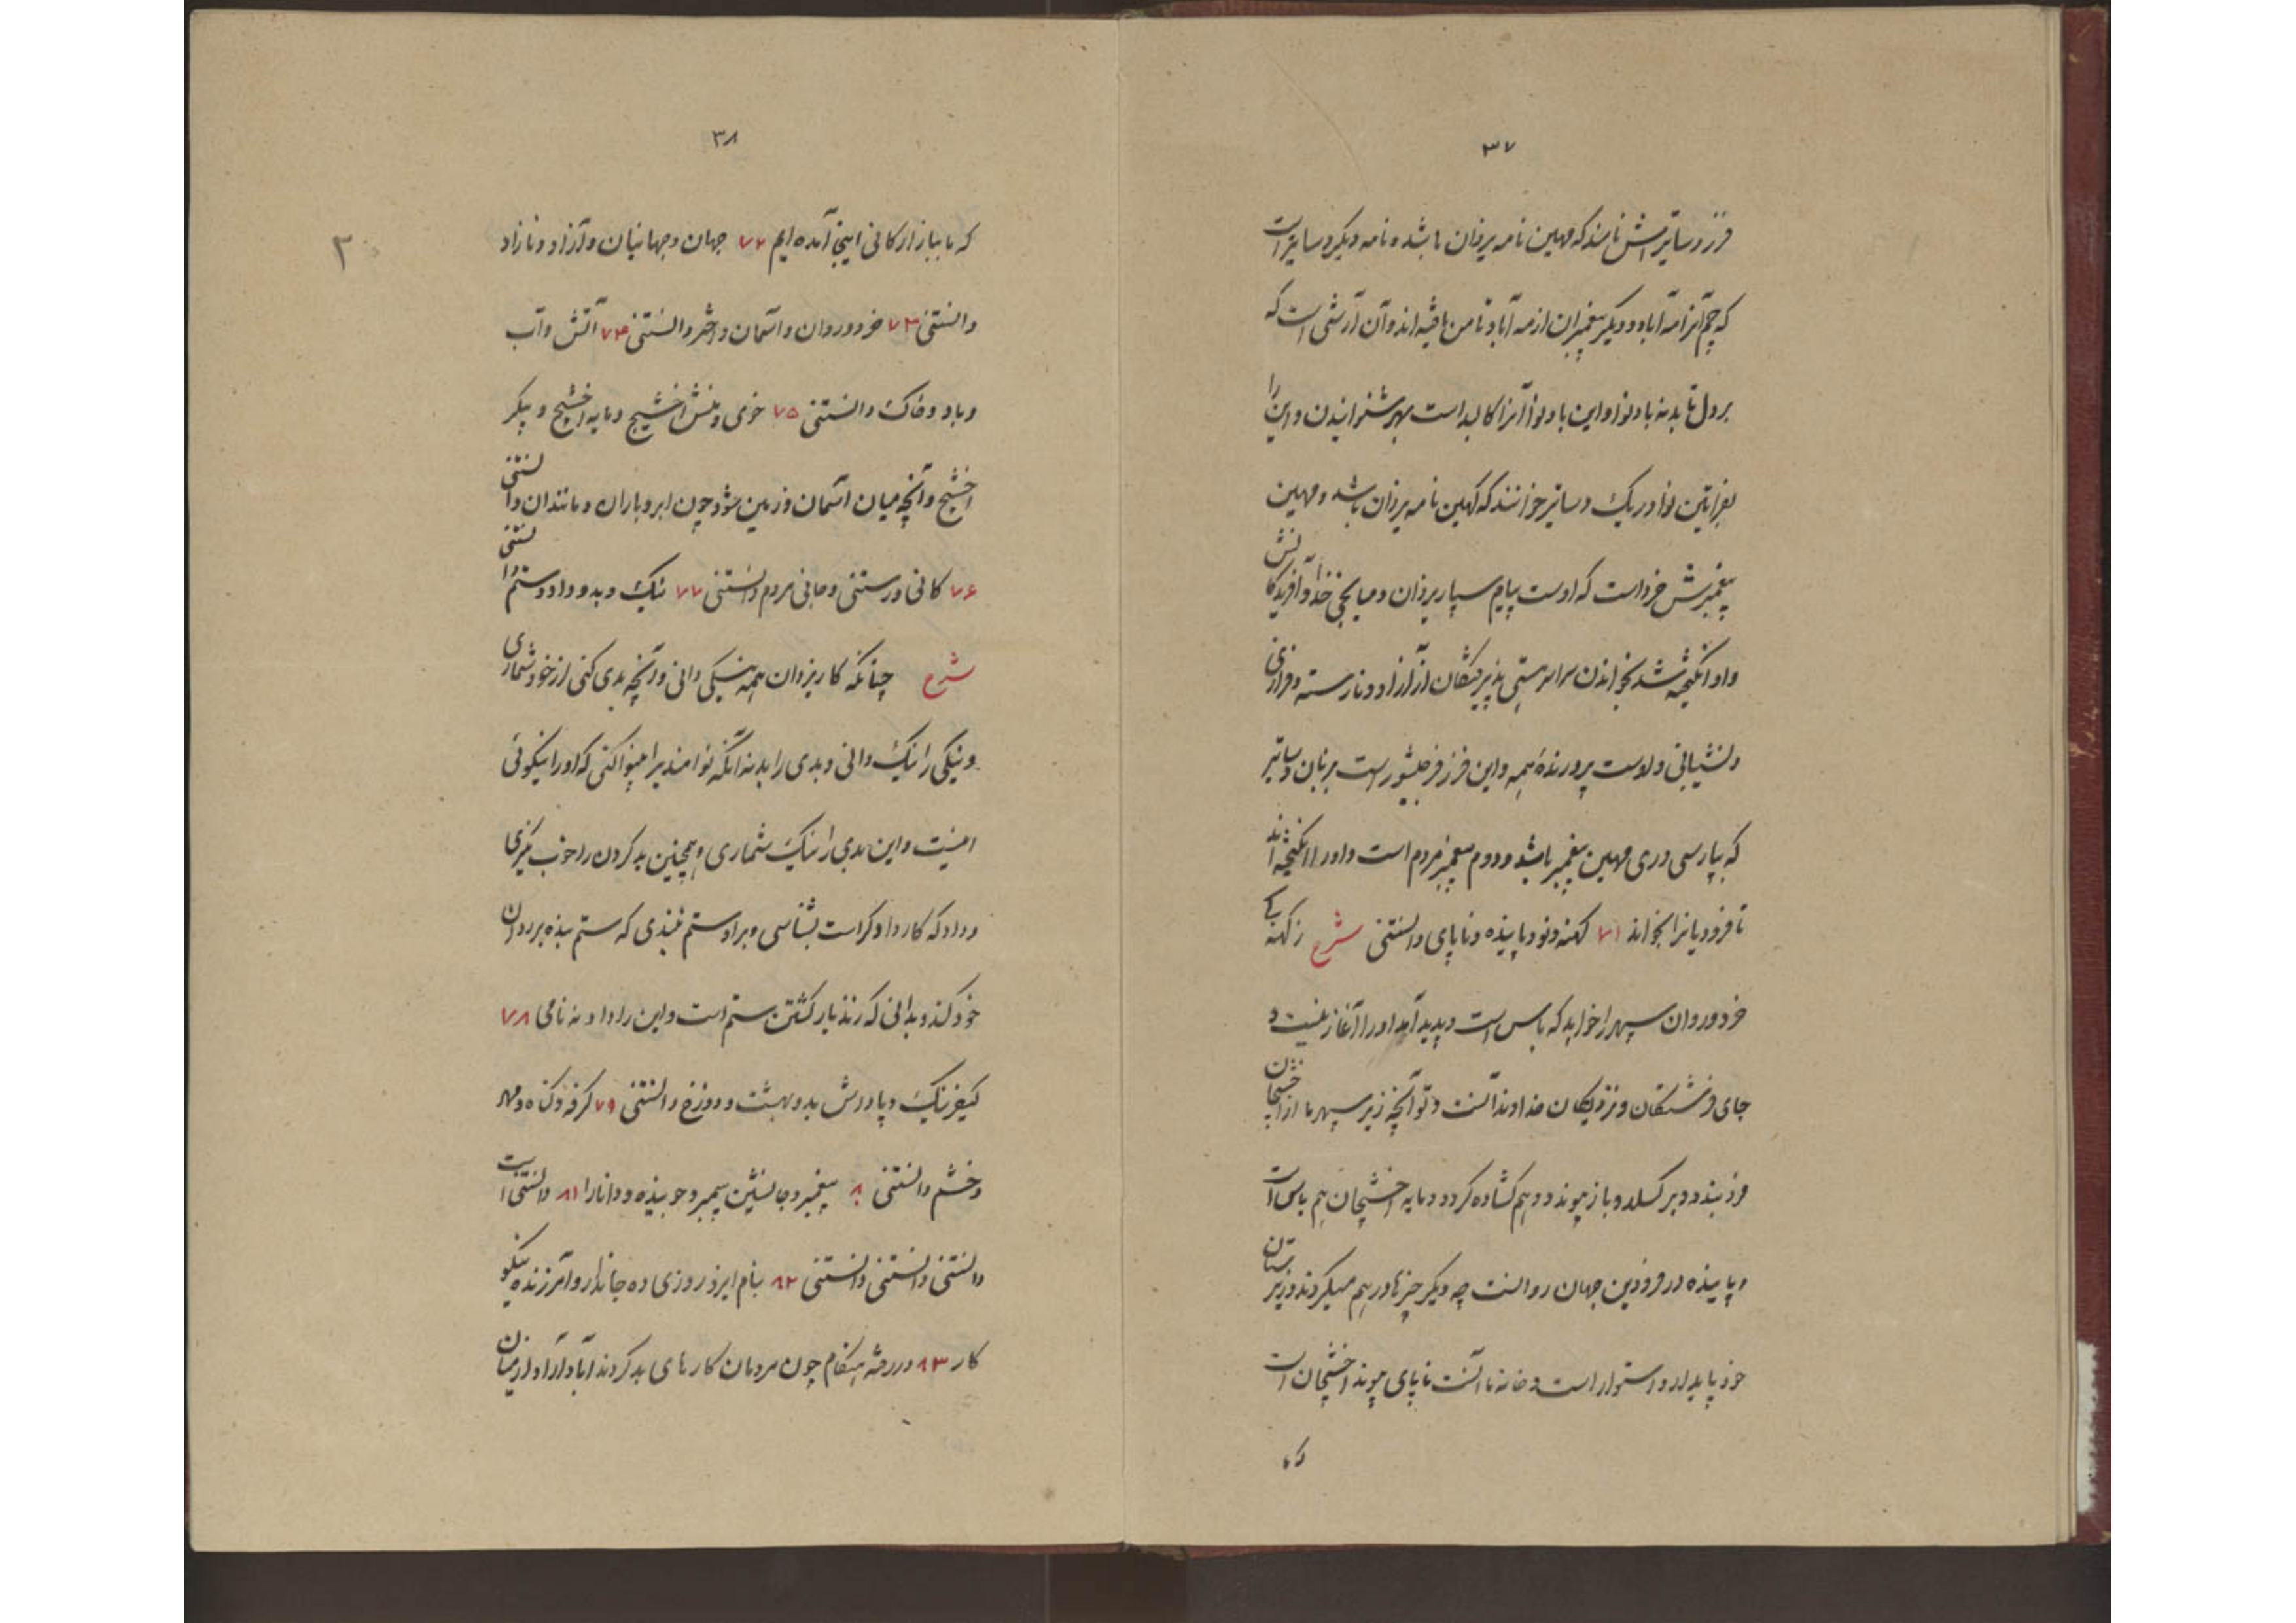 ۳۷
فرز دساتیرش نامند که مهین نامه یزدان باشد و نامه دیگر دساتیر است
که چم آنرا مه آباد و دیگر پیغمبران از مه آباد تا من یافته اند و آن آرشی است که
بر دل تابد نه باد نوا و این باد نوا آنرا کالبد است بهر شنوانیدن و این را
بفراتین نوا در یک دساتیر خوانند که کهین نامه یزدان باشد و مهین
پیغمبرش خرد است که اوست پیام سپار یزدان و میانجی خدا و آفریدگانش
و او انگیخته شد بخواندن سراسر هستی پذیرفتگان از آزاد و نارسته و فرازی
و نشیبانی و اوست پرورنده همه و این فرز فرجیشور است بزبان دساتیر
که بپارسی دری مهین پیغمبر باشد و دوم پیغمبر مردم است و او را انگیخته اند
تا فرودیانرا بخواند ۷۱ کهنه و نو و پاینده و ناپای دانستنی شرح ز کهنه
خرد و روان سپهر را خواهد که باس است و پدید آمد او را آغاز نیست و
جای فرشتگان و نزدیکان خداوند آنست و نو آنچه زیر سپهر ما از اخشیجان
فرو بندد و برگسلد و باز پیوندد و هم گشاده گردد و مایه اخشیجان هم باس است
و پاینده در فرودین جهان روانست چه دیگر چیزها در هم میگردند و زبرستان
خود پایدار و استوار است و خانه ما آنست ناپای پیوند اخشیجان است
۳۸
که ما ببازارگانی اینجا آمده ایم ۷۲ جهان و جهانیان و آزاد و نازاد
دانستنی ۷۳ خرد و روان و آسمان و اختر دانستنی ۷۴ آتش و آب
و باد و خاک دانستنی ۷۵ خوی و منش اخشیج و مایه اخشیج و پیکر
اخشیج و آنچه میان آسمان و زمین شود چون ابر و باران و مانند آن دانستنی
۷۶ کانی و رستنی و جانی مردم دانستنی ۷۷ نیک و بد و داد و ستم دانستنی
شرح چنانکه کار یزدان همه نیکی دانی و آنچه بدی کنی از خود شماری
و نیکی را نیک دانی و بدی را بد نه آنکه توانمندیرا بینوا کنی که او را نیکوئی
اینست و این بدی را نیک شماری و همچنین بد کردن را خوب نگیری
و داد که کار دادگر است بشناسی و بر او ستم نبندی که ستم بنده بر روان
خود کند و بدانی که زندبار کشتن ستم است و این را داد نه نامی ۷۸
کیفر نیک و پادرش بد و بهشت و دوزخ دانستنی ۷۹ کرفه و گناه و مهر
و خشم دانستنی ۸۰ پیغمبر و جانشین پیمبر و جوینده و دانا را ۸۱ دانستنی است
دانستنی دانستنی دانستنی ۸۲ بنام ایزد روزی ده جاندار و آمرزنده نیکو
کار ۸۳ در رفته هنگام چون مردمان کارهای بد کردند آباد آراد از میان